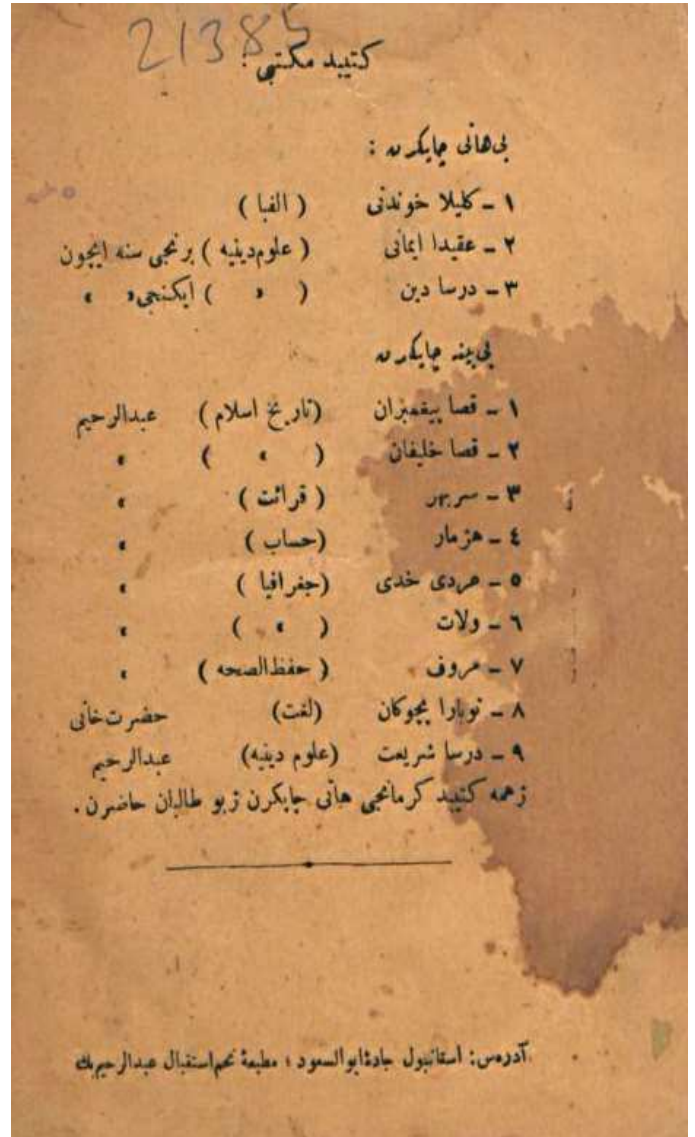 21385
كتيبد مكتبى :
بى هاتى چاپكرن :
١ ـ كليلا خوندنى ( الفبا )
٢ ـ عقيدا ايمانى ( علوم دينيه ) برنجى سنه ايچون
٣ ـ درسا دين ( » ) ايكنجى » »
بى‌بينه چاپكرن
١ ـ قصا پيغمبران (تاريخ اسلام) عبدالرحيم
٢ ـ قصا خليفان ( » ) »
٣ ـ سربهر ( قرائت ) »
٤ ـ هژمار (حساب ) »
٥ ـ عردى خدى (جغرافيا ) »
٦ ـ ولات ( » ) »
٧ ـ مروف ( حفظ‌الصحه ) »
٨ ـ نوبارا بچوكان (لغت) حضرت خانى
٩ ـ درسا شريعت (علوم دينيه) عبدالرحيم
ژهمه كتيبد كرمانجى هاتى چاپكرن ژبو طالبان حاضرن .
آدرەس: استانبول جادهٔ ابوالسعود ؛ مطبعهٔ نجم استقبال عبدالرحيم بك